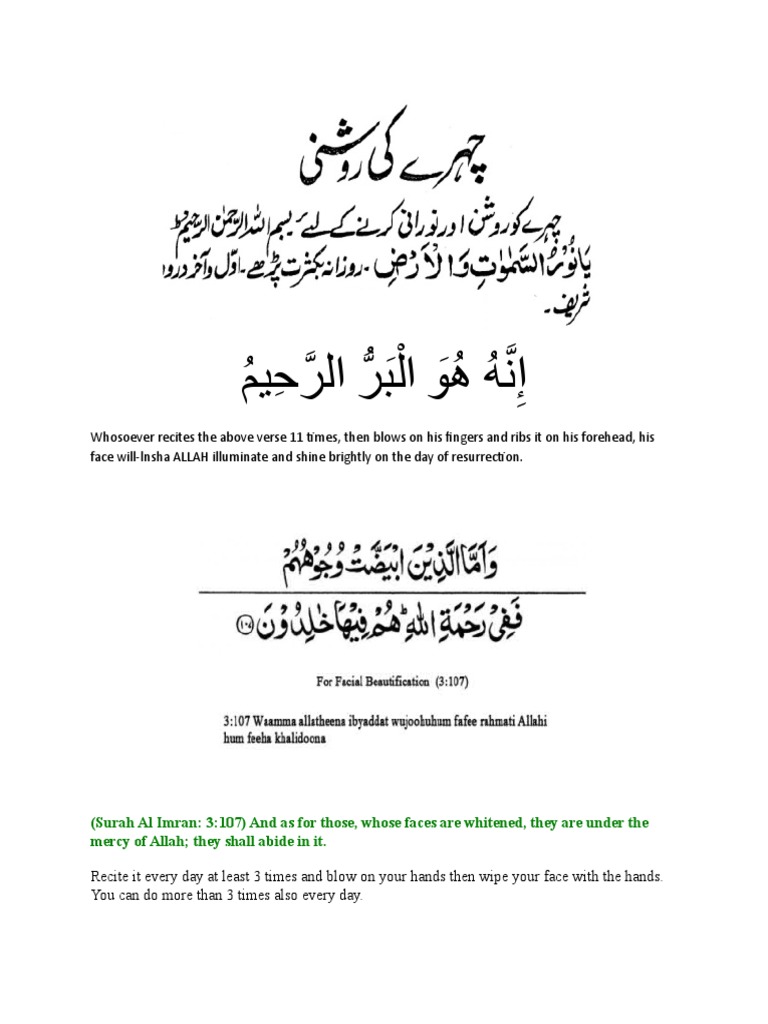 چہرے کی روشنی
چہرے کو روشن اور نورانی کرنے کے لیے بسم اللہ الرحمٰن الرحیم ط
یَا نُوْرُ السَّمٰوٰتِ وَالْاَرْضِ ۔ روزانہ بکثرت پڑھے ۔ اوّل و آخر درود
شریف ۔
إِنَّهُ هُوَ الْبَرُّ الرَّحِيمُ
Whosoever recites the above verse 11 times, then blows on his fingers and ribs it on his forehead, his
face will-Insha ALLAH illuminate and shine brightly on the day of resurrection.
وَاَمَّا الَّذِيْنَ ابْيَضَّتْ وُجُوْهُهُمْ
فَفِيْ رَحْمَةِ اللّٰهِ ؕ هُمْ فِيْهَا خٰلِدُوْنَ ۝۱۰۷
For Facial Beautification (3:107)
3:107 Waamma allatheena ibyaddat wujoohuhum fafee rahmati Allahi
hum feeha khalidoona
(Surah Al Imran: 3:107) And as for those, whose faces are whitened, they are under the
mercy of Allah; they shall abide in it.
Recite it every day at least 3 times and blow on your hands then wipe your face with the hands.
You can do more than 3 times also every day.